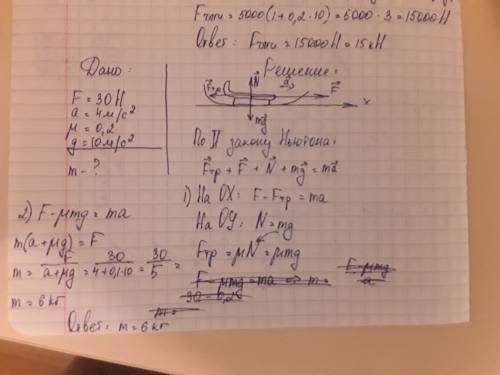 Fтяги = 5000(1+0,2·10) = 5000·3 = 15000Н
Ответ: Fтяги = 15000Н = 15кН
Дано:
F = 30Н
a = 4м/с²
μ = 0,2
g = 10м/с²
m - ?
Решение:
F⃗тр N⃗ a⃗ F⃗
x
mg⃗
По II закону Ньютона:
F⃗тр + F⃗ + N⃗ + mg⃗ = ma⃗
1) На OX: F - Fтр = ma
На ОУ: N = mg
Fтр = μN = μmg
F - μmg = ma => m = F - μmg / a
30 - 0,2
m =
2) F - μmg = ma
m(a+μg) = F
m = F / a+μg = 30 / 4+0,1·10 = 30 / 5 =
m = 6 кг
Ответ: m = 6 кг